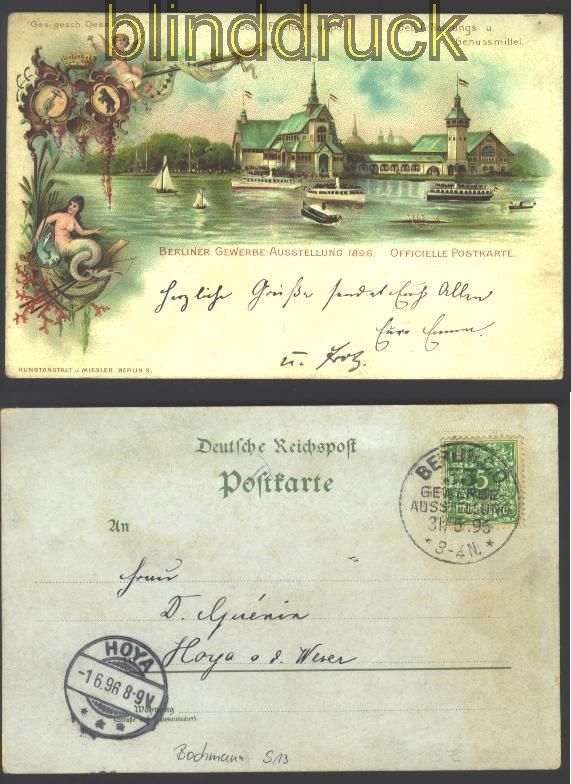 blinddruck
Ges. gesch Dess.
u.
Genussmittel.
BERLINER GEWERBE-AUSSTELLUNG 1896. OFFICIELLE POSTKARTE.
herzliche Grüße sendet Euch Allen
Eure Emma.
u. Fritz.
KUNSTANSTALT J. MIESLER, BERLIN S.
Deutsche Reichspost
Postkarte
BERLIN
GEWERBE
AUSSTELLUNG
31.5.96
* 3-4N. *
5
An
D. Guénin
Hoya a. d. Weser
HOYA
-1 6.96 8-9V
* * *
Wohnung
Bochmann S13